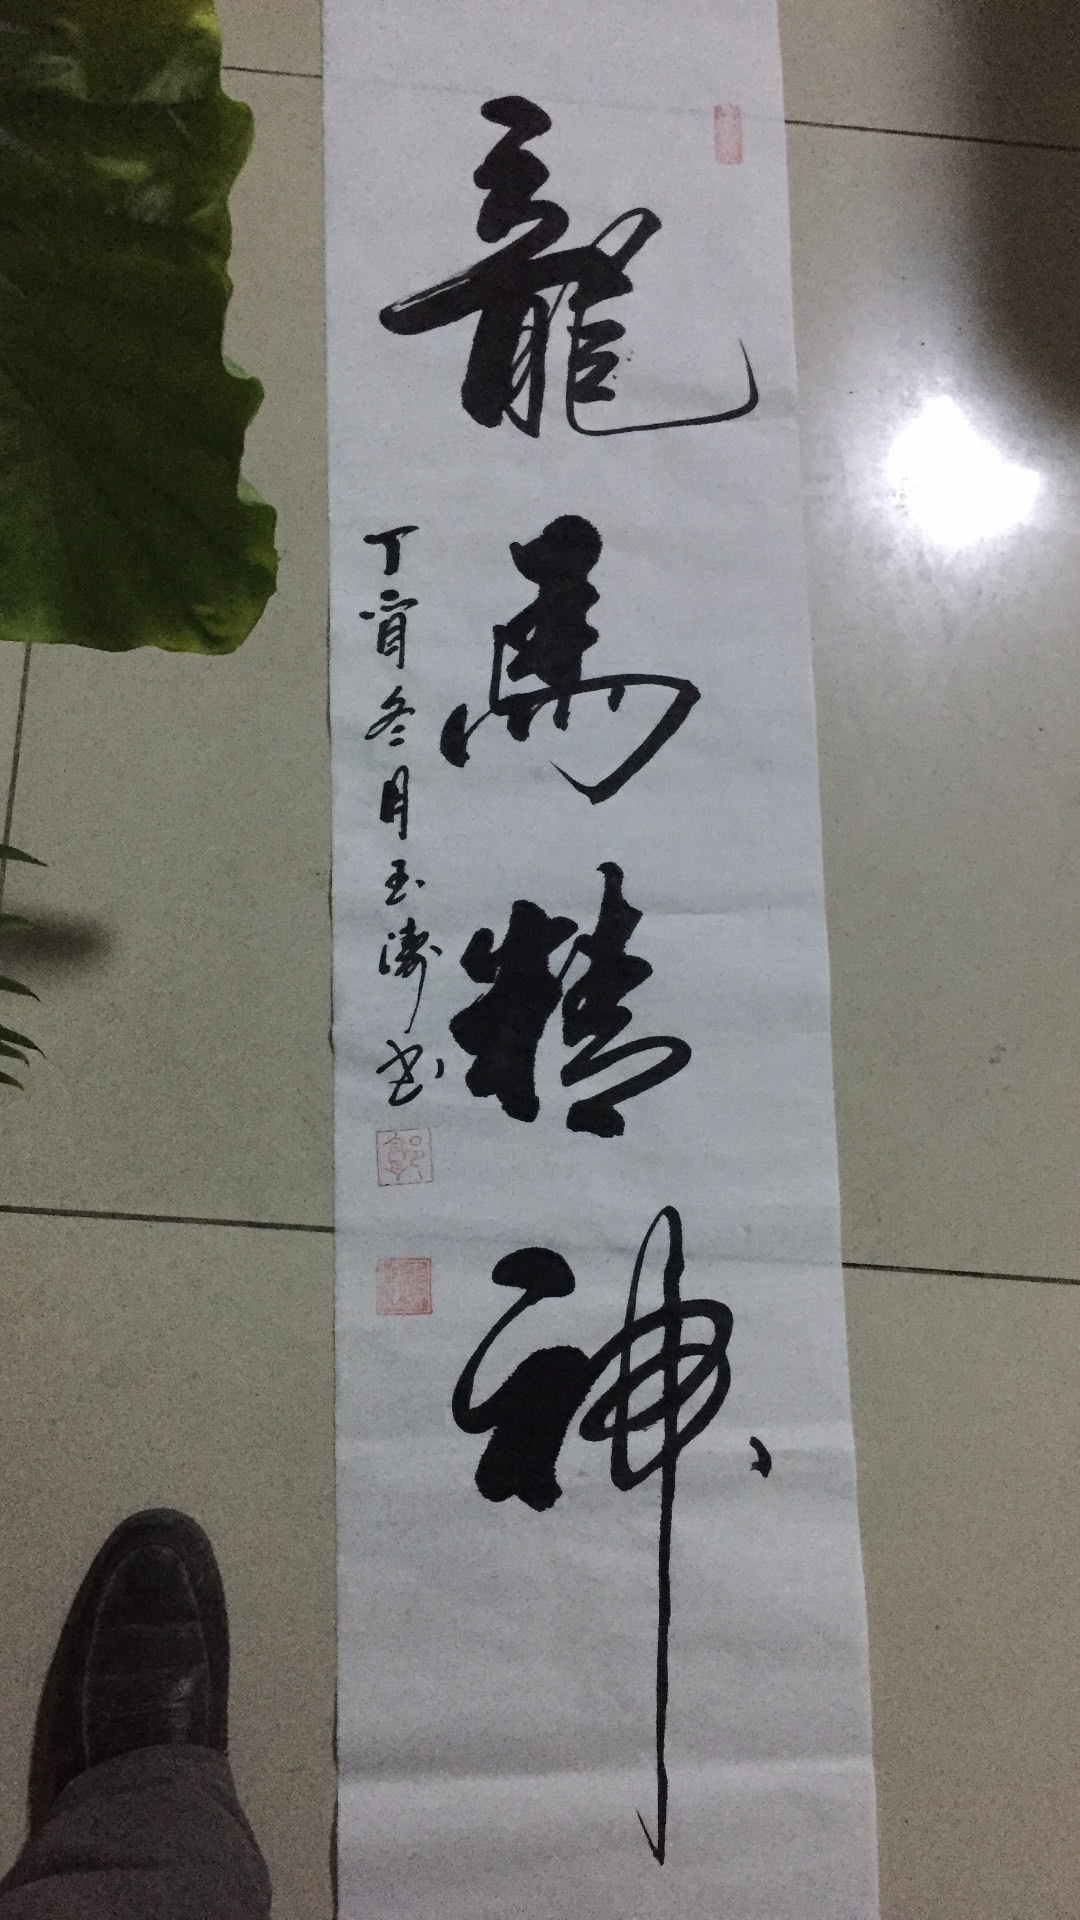 龍馬精神
丁酉冬月玉濤书